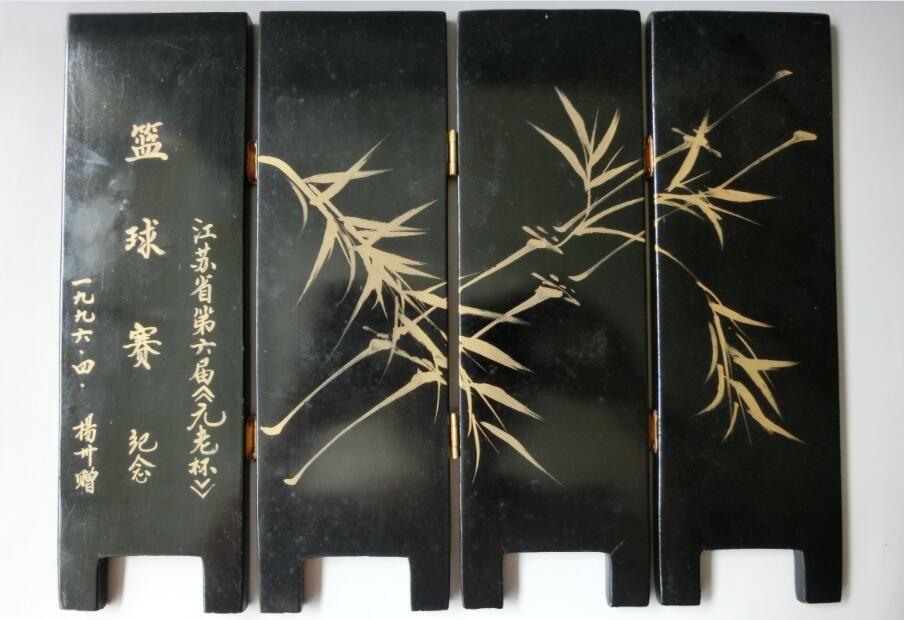 江苏省第六届《元老杯》
篮球赛 纪念
一九九六·四·
楊州赠